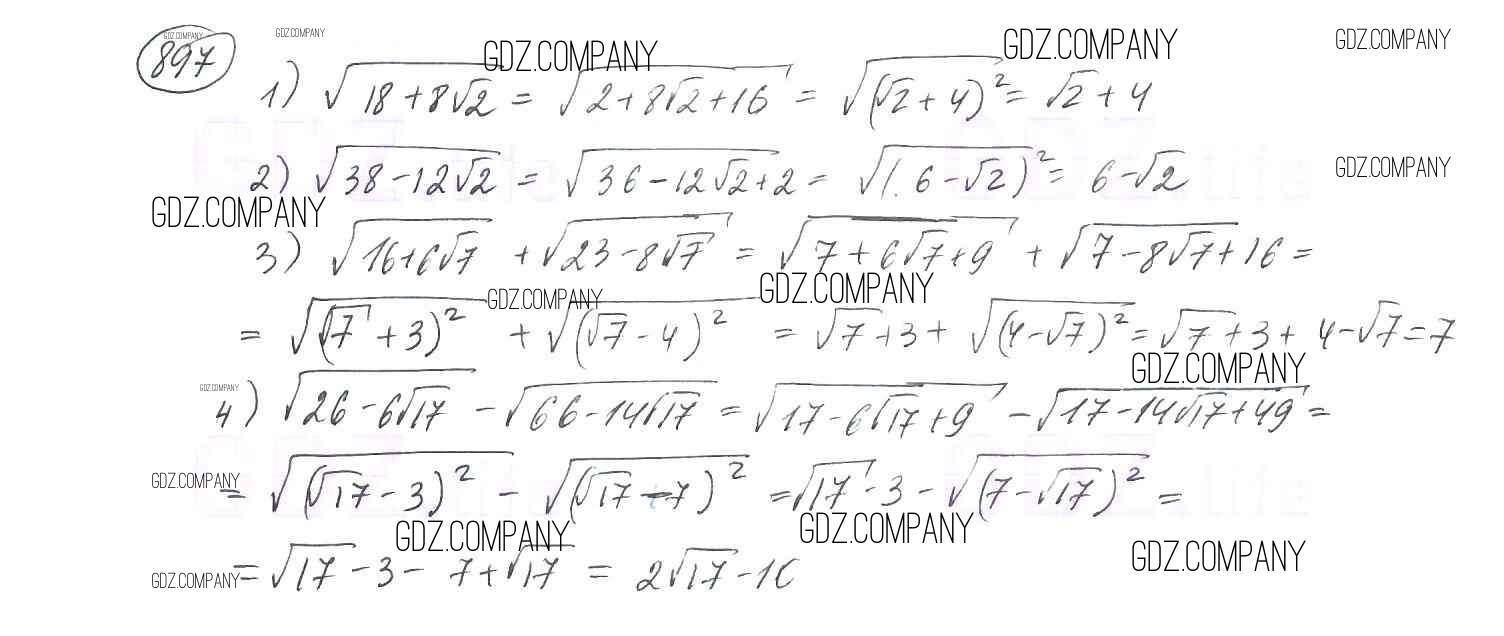 897
GDZ.COMPANY GDZ.COMPANY GDZ.COMPANY GDZ.COMPANY GDZ.COMPANY
1) √(18+8√2) = √(2+8√2+16) = √((√2+4)²) = √2+4
2) √(38-12√2) = √(36-12√2+2) = √((6-√2)²) = 6-√2
GDZ.COMPANY
GDZ.COMPANY
3) √(16+6√7) + √(23-8√7) = √(7+6√7+9) + √(7-8√7+16) =
GDZ.COMPANY GDZ.COMPANY
= √((√7+3)²) + √((√7-4)²) = √7+3+ √((4-√7)²) = √7+3+ 4-√7=7
GDZ.COMPANY
GDZ.COMPANY
4) √(26-6√17) - √(66-14√17) = √(17-6√17+9) - √(17-14√17+49) =
GDZ.COMPANY
= √((√17-3)²) - √((√17-7)²) = √17-3-√((7-√17)²) =
GDZ.COMPANY GDZ.COMPANY GDZ.COMPANY
GDZ.COMPANY
= √17-3-7+√17 = 2√17-10